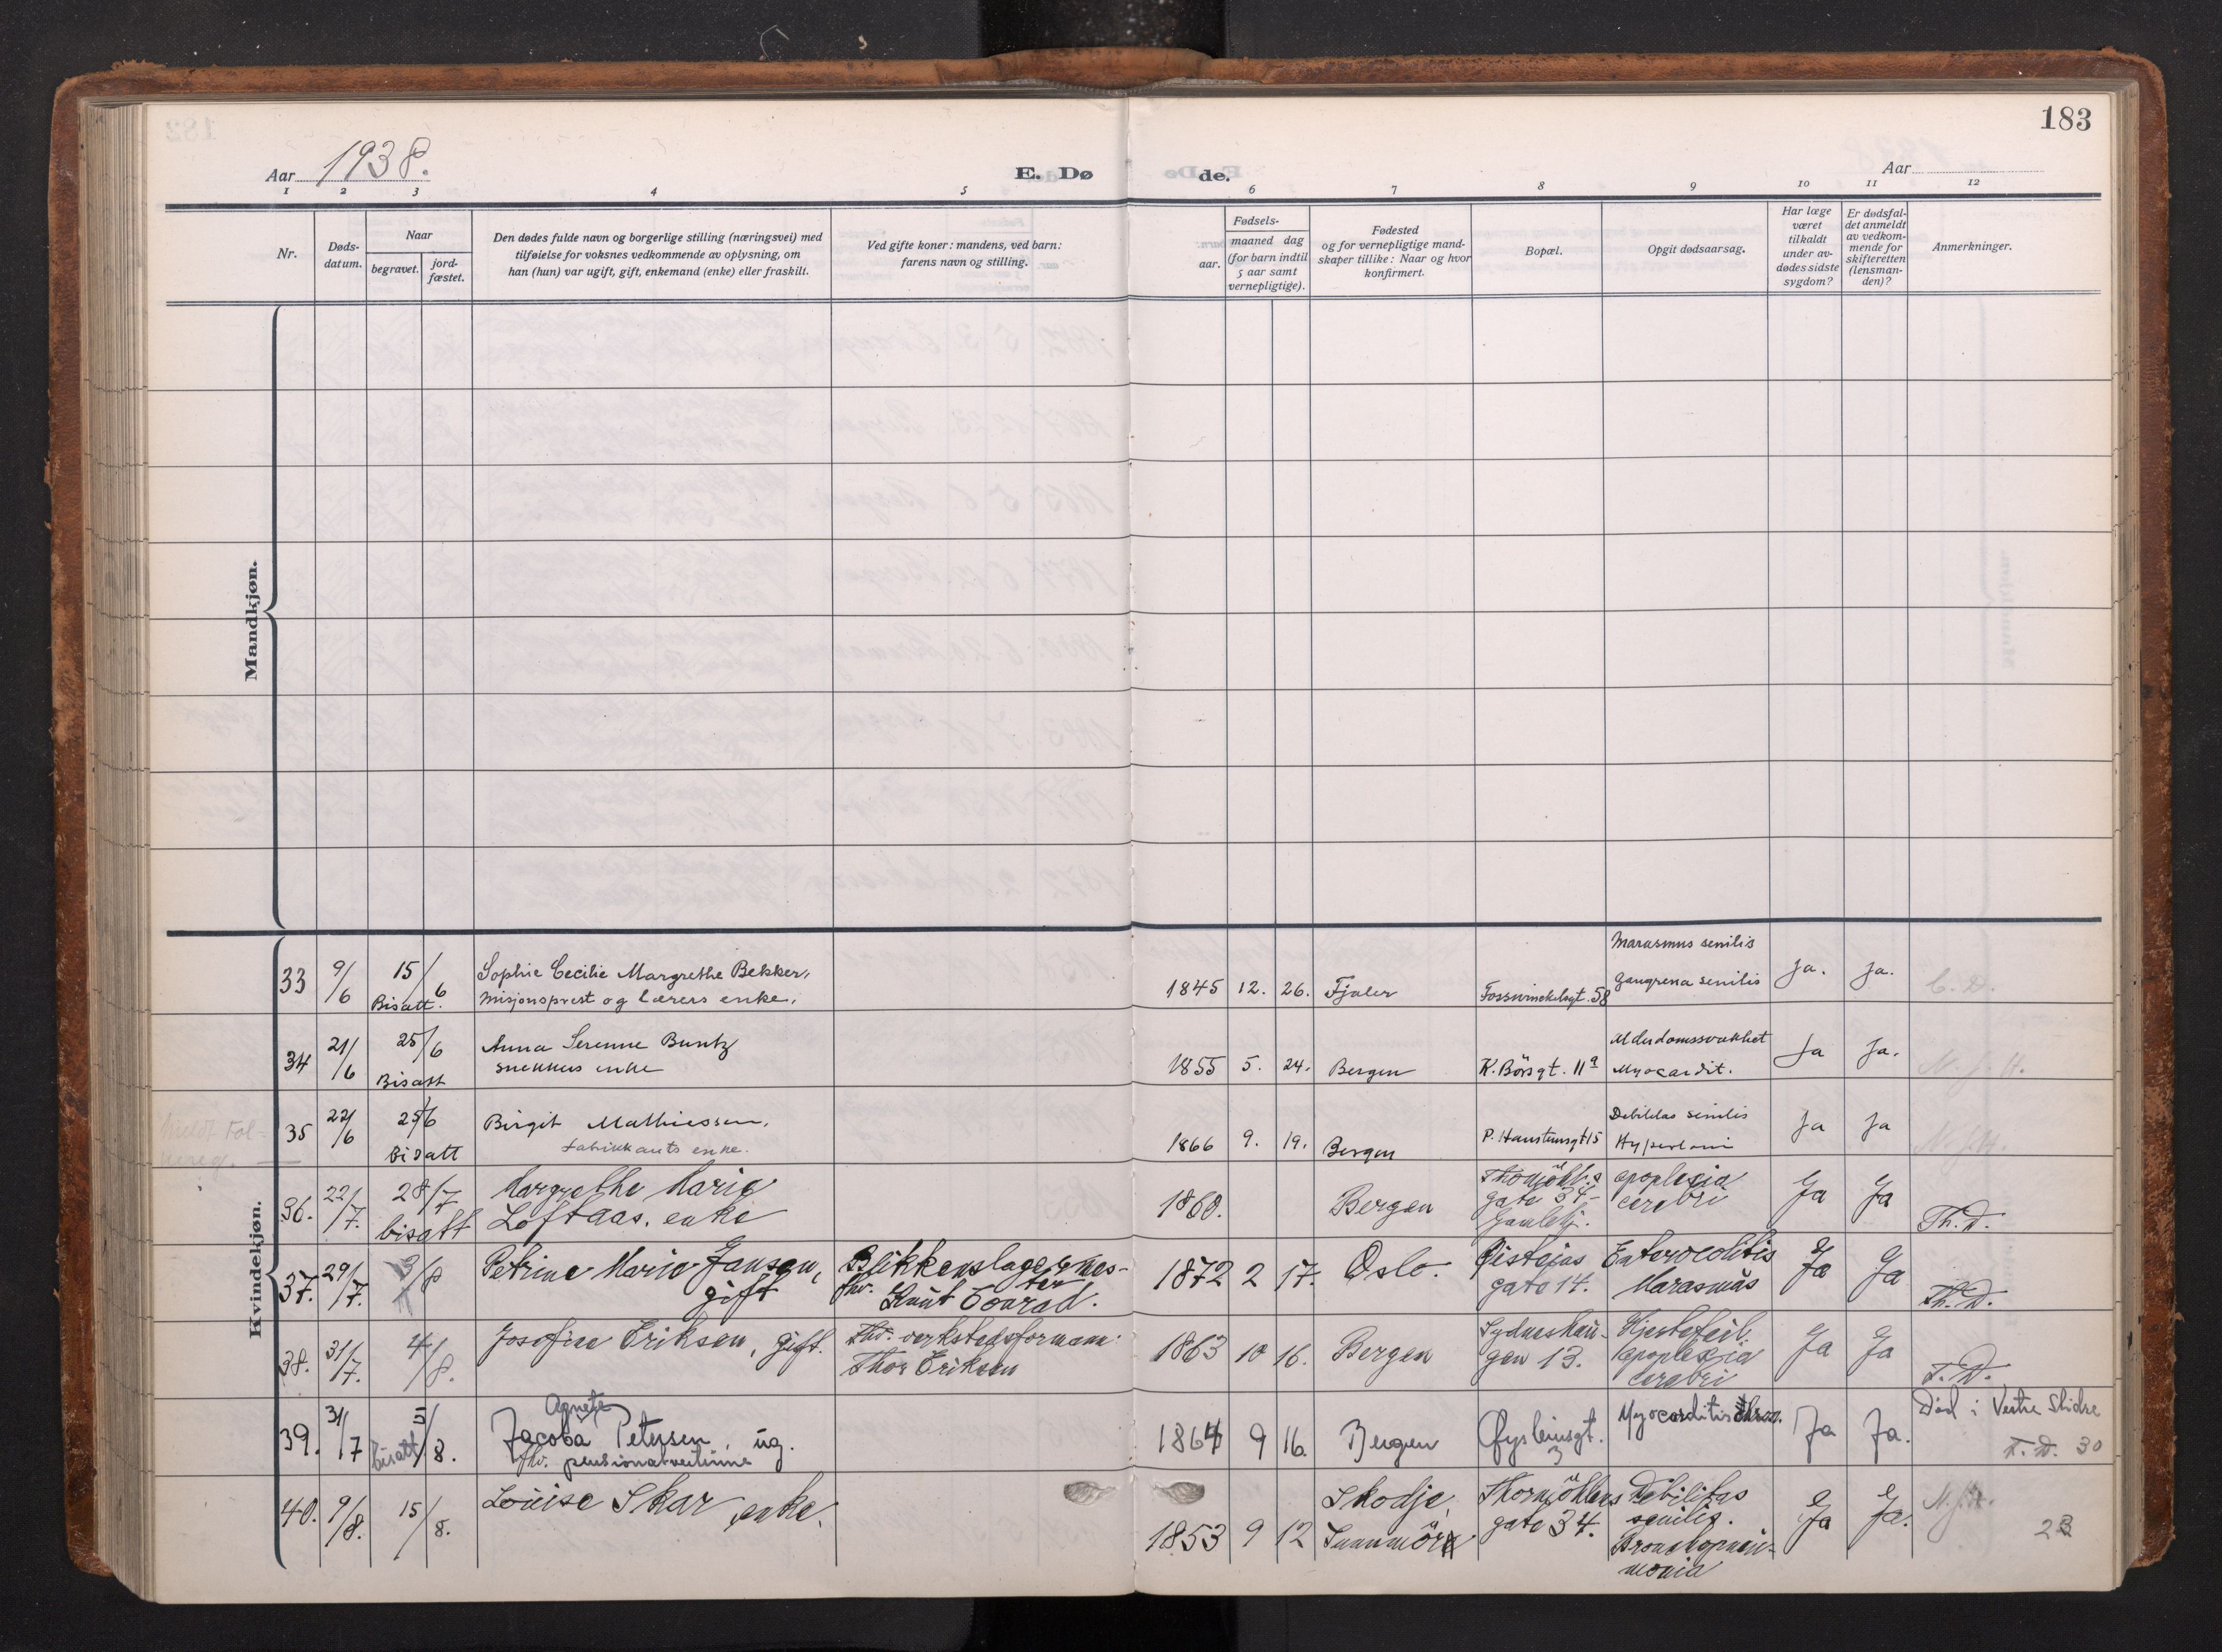 183
Aar 1938.
E. Dø
de.
Aar
1 2 3 4 5 6 7 8 9 10 11 12
Nr.
Døds-
datum.
Naar
begravet.
jord-
fæstet.
Den dødes fulde navn og borgerlige stilling (næringsvei) med
tilføielse for voksnes vedkommende av oplysning, om
han (hun) var ugift, gift, enkemand (enke) eller fraskilt.
Ved gifte koner: mandens, ved barn:
farens navn og stilling.
Fødsels-
aar.
maaned dag
(for barn indtil
5 aar samt
vernepligtige).
Fødested
og for vernepligtige mand-
skaper tillike: Naar og hvor
konfirmert.
Bopæl.
Opgit dødsaarsag.
Har læge
været
tilkaldt
under av-
dødes sidste
sygdom?
Er dødsfal-
det anmeldt
av vedkom-
mende for
skifteretten
(lensman-
den)?
Anmerkninger.
Mandkjøn.
Kvindekjøn.
33 9/6 15/6 Bisatt.
Sophie Cecilie Margrethe Bekker,
misjonsprest og lærers enke.
1845 12. 26. Fjaler
Fossvinckelsgt. 58
Marasmus senilis
Gangrena senilis
Ja. Ja. C. D.
34 21/6 25/6 Bisatt
Anna Serenne Buntz
snekkers enke
1855 5. 24. Bergen
K. Börsgt. 11a
Alderdomssvakhet
Myocardit.
Ja Ja. N. J. H.
35 22/6 25/6 Bisatt
Birgit Mathiessen,
fabrikkants enke.
1866 9. 19. Bergen
P. Haustumsgt 15
Debilitas senilis
Ja Ja N. J. H.
36. 22/7. 28/7 bisatt
Margrethe Marie
Loftaas, enke
1860. Bergen
gate 34-
Gamlehj.
apoplexia
cerebri
Ja Ja Th. D.
37. 29/7. 3/8
Petrine Marie Jansen,
gift
Blikkenslagermes-
ter
fhv. Knut Conrad.
1872 2 17. Oslo.
gate 14.
Enterocolitis
Marasmus
Ja Ja Th. D.
38. 31/7. 4/8.
Josefine Eriksen, gift.
Fhv. verkstedsformann
Thor Eriksen
1863 10 16. Bergen
Sydneshau-
gen 13.
Hjertefeil.
apoplexia
cerebri
Ja Ja T. D.
39. 31/7 5/8. bisatt
Agnete
Jacoba Petersen, ug.
fhv. pensionatvertinne
1864 9 16. Bergen
Øysteinsgt.
3
Myocarditis chron.
Ja Ja.
Död i Vestre Slidre
T. D. 30
40. 9/8. 15/8.
Louise Skar, enke.
1853 9 12
Skodje,
Sunnmöre
Thormöhlens
gate 34.
Debilitas
senilis.
Bronchopneu-
monia
Ja Ja. N. J. H.
23